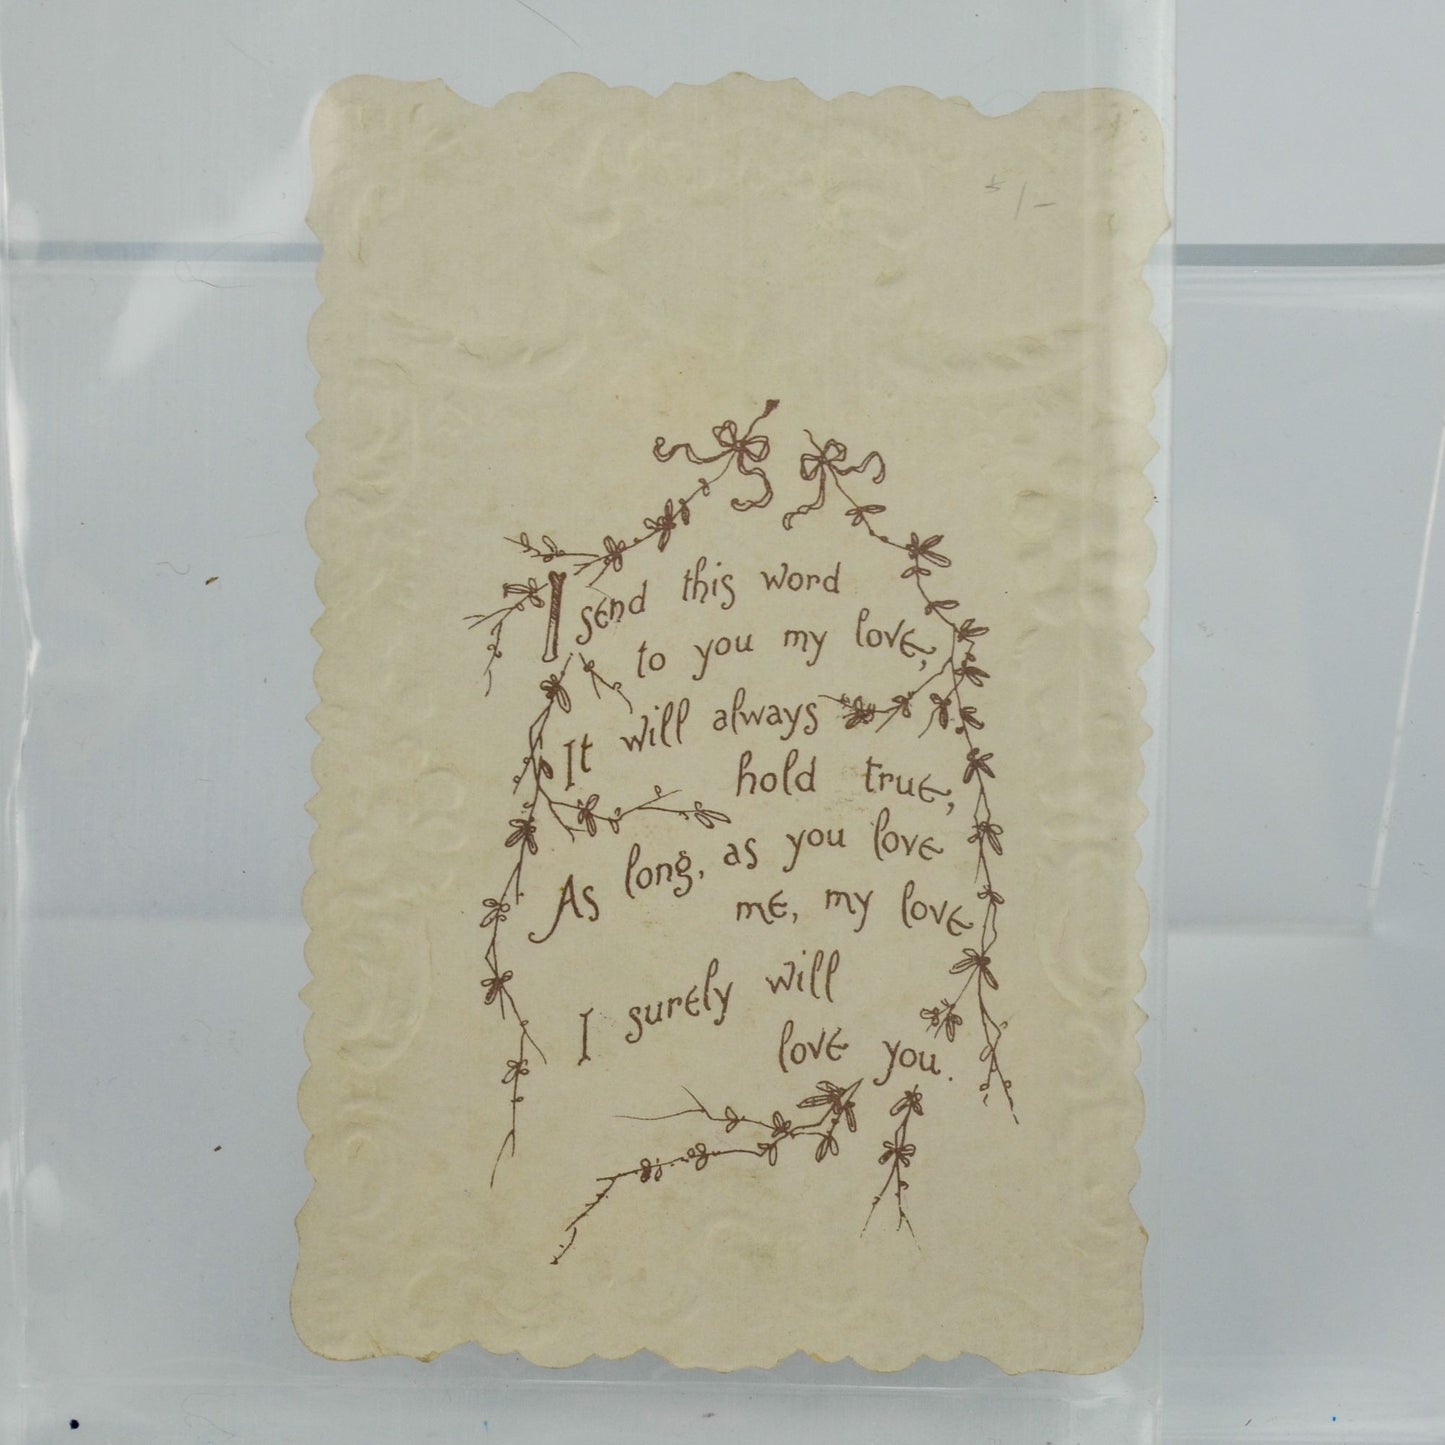 5/-
I send this word
to you my love,
It will always
hold true,
As long, as you love
me, my love
I surely will
love you.